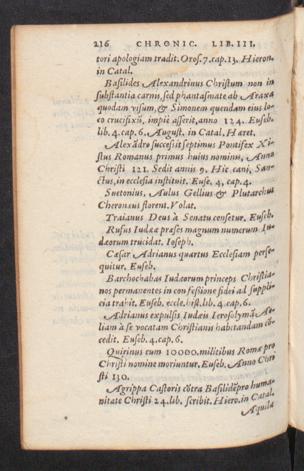 216 CHRONIC. LIB. III.
tori apologiam tradit. Oros. 7. cap. 13. Hieron.
in Catal.
Basilides Alexandrinus Christum non in
substantia carnis, sed phantasmate ab
quodam visum, & Simonem quendam eius lo-
co crucifixũ, impiè asserit, anno 124. Euseb.
lib. 4. cap. 6. August. in Catal. Hæret.
Alexãdro succeßit septimus Pontifex Xi-
stus Romanus primus huius nominis, Anno
Christi 121. Sedit annis 9. Hic cani, San-
ctus, in ecclesia instituit. Euse. 4. cap. 4.
Suetonius, Aulus Gellius & Plutarchus
Cheroneus florent. Volat.
Traianus Deus à Senatu censetur. Euseb.
Rufus Iudææ præses magnum numerum Iu-
dæorum trucidat. Ioseph.
Cæsar Adrianus quartus Ecclesiam perse-
quitur. Euseb.
Barchochabas Iudæorum princeps Christia-
nos permanentes in confeßione fidei ad suppli-
cia trahit. Euseb. eccle. hist. lib. 4. cap. 6.
Adrianus expulsis Iudæis Ierosolymã Ae-
liam à se vocatam Christianis habitandam cõ-
cedit. Euseb. 4. cap. 6.
Quirinus cum 10000. militibus Romæ pro
Christi nomine moriuntur. Euseb. Anno Chri-
sti 130.
Agrippa Castoris cõtra Basilidẽ pro huma-
nitate Christi 24. lib. scribit. Hiero. in Catal.
Aquila